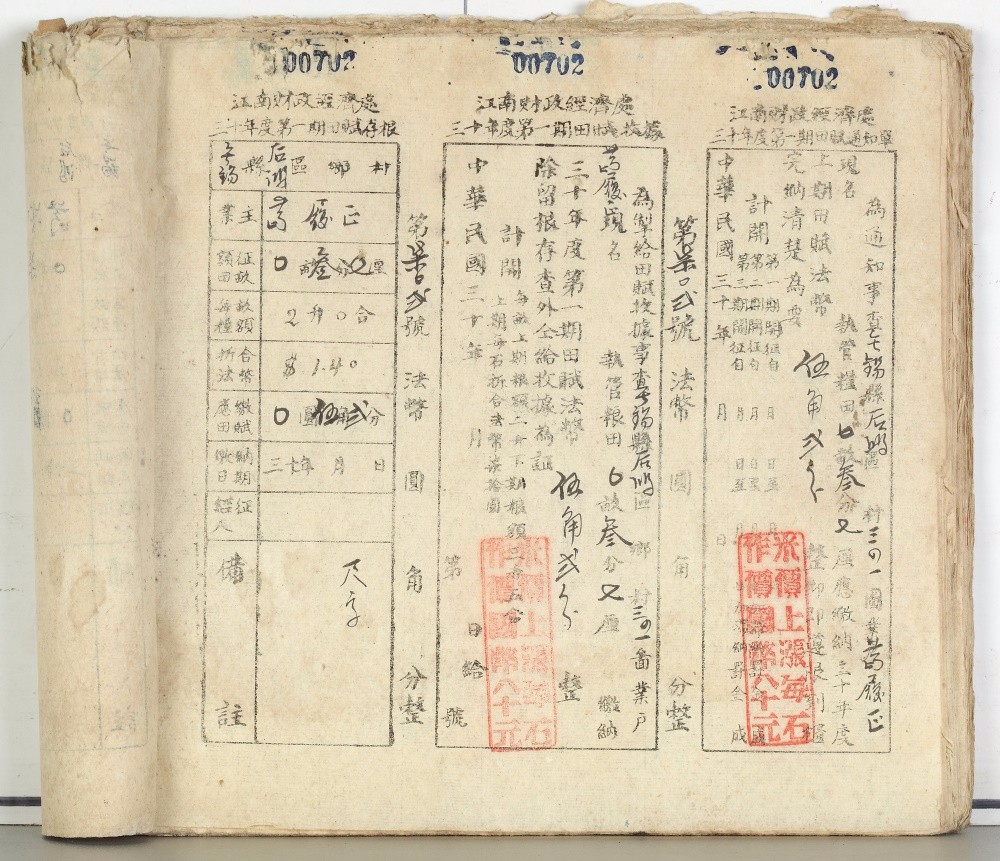 00702
江南財政經濟處
三十年度第一期田賦通知單
為通知事查無錫縣后鄉區 村三〇一圖業
現名 執管糧田〇畝叁分七厘應繳納三十年度
上期田賦法幣 伍角弍分 整仰即遵限剋
完納清楚為要
計開
第一期開征自 月 日至 月 日
第二期開征自 月 日至
第三期開征自 月 日至
中華民國三十年 月 日
米價上漲每石
作價國幣八十元
號 法幣 圓 角 分整
00702
江南財政經濟處
三十年度第一期田賦收據
為掣給田賦收據事查無錫縣后鄉區 鄉 村三〇一啚業戶
現名 執管糧田〇畝叁分七厘 繳納
三十年度第一期田賦法幣 伍角弍分 整
除留根存查外仝給收據為証
計開
每畝上期根額二升下期根額三升五合
上期每石折合法幣柒拾圓
中華民國三十年 月 日給
第 號
米價上漲每石
作價國幣八十元
號 法幣 圓 角 分整
00702
江南財政經濟處
三十年度第一期田賦存根
無錫縣 后鄉區 鄉 村
業主
征畝額田 〇畝叁分七厘
畝額每種 2升〇合
合幣折法 $1.40
繳賦應田 〇圓伍角弍分
納期繳日 三十年 月 日
征人經
備註